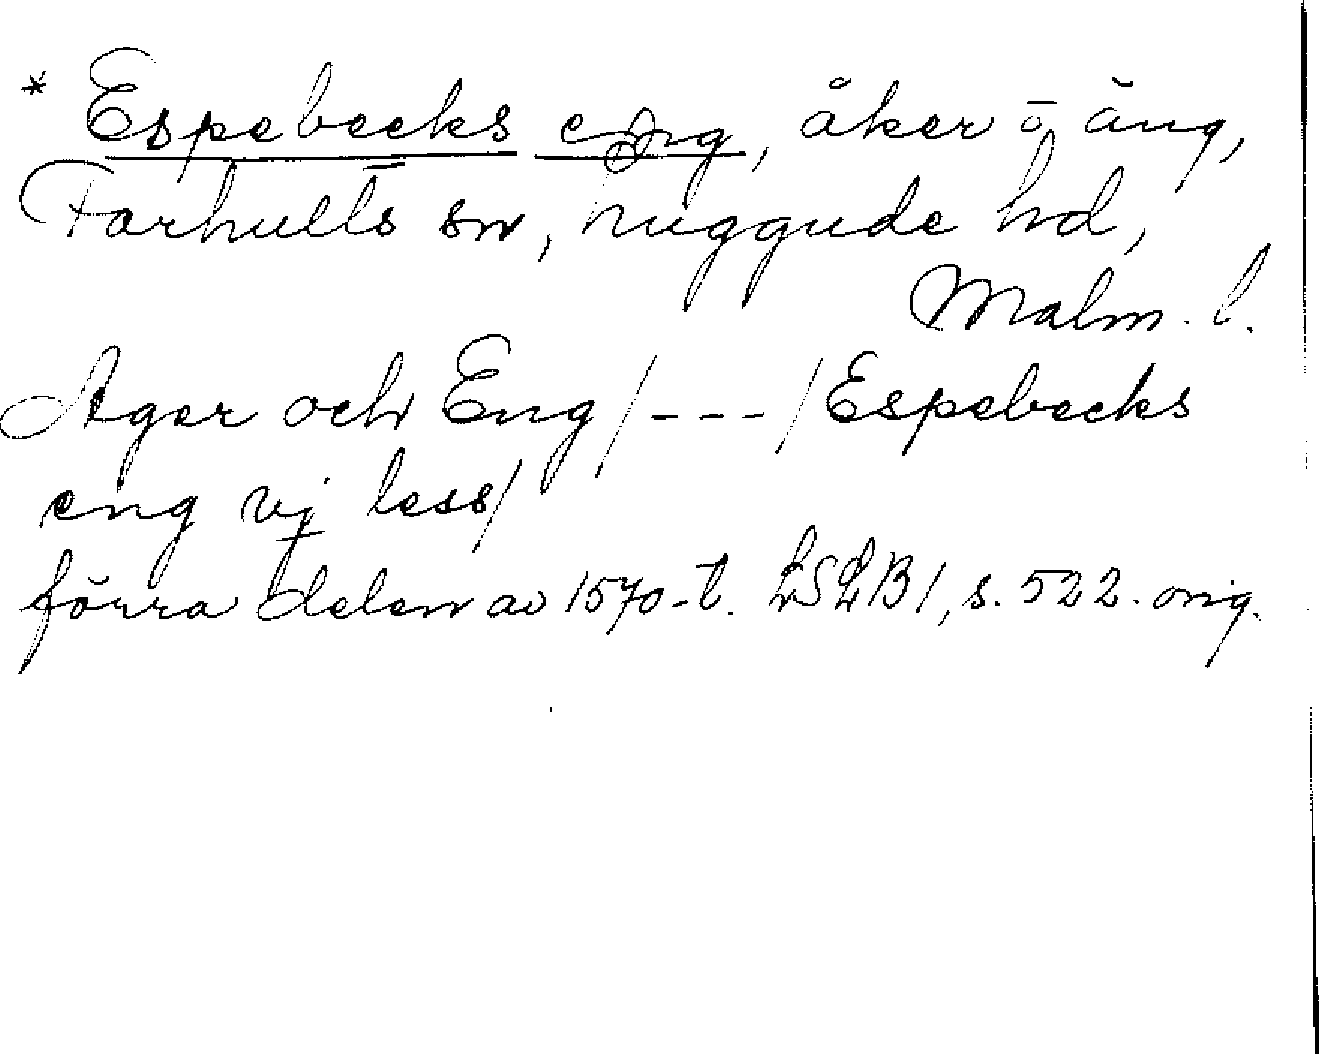 * Espebecks eng, åker o äng,
Farhults sn, Luggude hd,
Malm. l.
Ager och Eng /---/ Espebecks
eng vj less/
förra delen av 1570-t. LSLB 1, s. 522. orig.